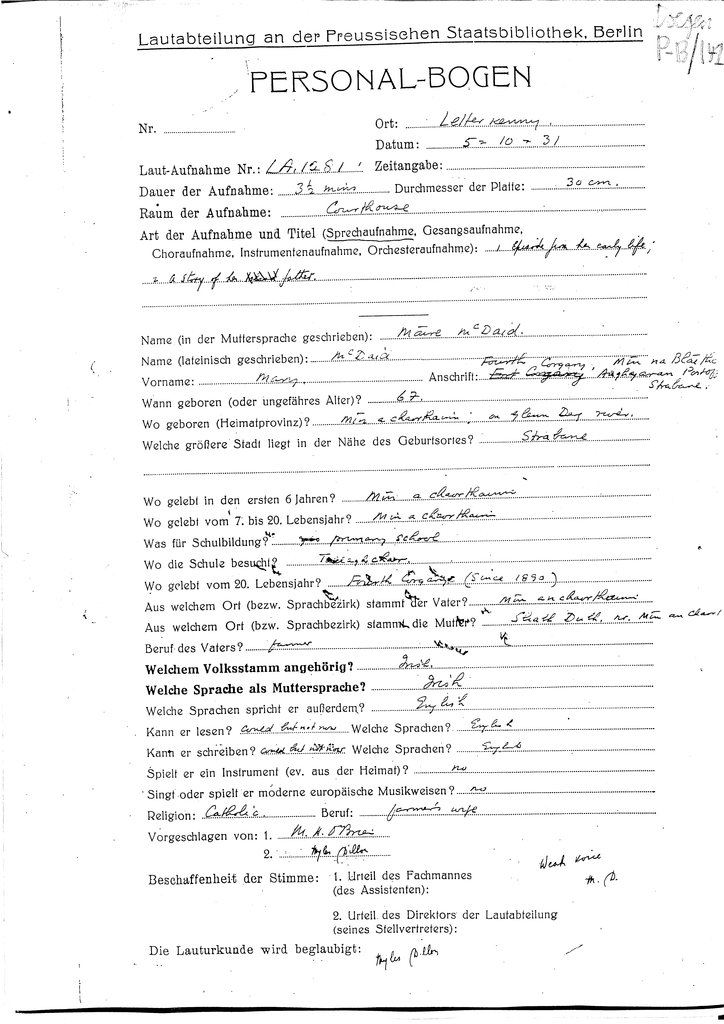 Lautabteilung an der Preussischen Staatsbibliothek, Berlin
P-B/142
PERSONAL-BOGEN
Nr.
Ort: Letterkenny.
Datum: 5 - 10 - 31
Laut-Aufnahme Nr.: LA.1281 Zeitangabe:
Dauer der Aufnahme: 3½ mins Durchmesser der Platte: 30 cm.
Raum der Aufnahme: Courthouse
Art der Aufnahme und Titel (Sprechaufnahme, Gesangsaufnahme,
Choraufnahme, Instrumentenaufnahme, Orchesteraufnahme): 1 Episode from her early life;
2 a story of her father.
Name (in der Muttersprache geschrieben): Máire McDaid.
Name (lateinisch geschrieben): McDaid
Vorname: Mary. Anschrift: Fourth Corgary, Mín na Bláithe
Aughyaran
Strabane.
Wann geboren (oder ungefähres Alter)? 67.
Wo geboren (Heimatprovinz)? Mín a chaorthainn; on Glenn Derg river.
Welche größere Stadt liegt in der Nähe des Geburtsortes? Strabane
Wo gelebt in den ersten 6 Jahren? Mín a chaorthainn
Wo gelebt vom 7. bis 20. Lebensjahr? Mín a chaorthainn
Was für Schulbildung? primary school
Wo die Schule besucht?
Wo gelebt vom 20. Lebensjahr? Fourth Corgary (Since 1890)
Aus welchem Ort (bezw. Sprachbezirk) stammt der Vater? Mín an chaorthainn
Aus welchem Ort (bezw. Sprachbezirk) stammt die Mutter? nr. Mín an chaor
Beruf des Vaters? farmer
Welchem Volksstamm angehörig? Irish.
Welche Sprache als Muttersprache? Irish
Welche Sprachen spricht er außerdem? English
Kann er lesen? could but not now Welche Sprachen? English
Kann er schreiben? could but not now Welche Sprachen? English
Spielt er ein Instrument (ev. aus der Heimat)? no
Singt oder spielt er moderne europäische Musikweisen? no
Religion: Catholic. Beruf: farmer's wife
Vorgeschlagen von: 1. M. A. O'Brien
2. Myles Dillon
Beschaffenheit der Stimme: 1. Urteil des Fachmannes
(des Assistenten):
Weak voice
M. D.
2. Urteil des Direktors der Lautabteilung
(seines Stellvertreters):
Die Lauturkunde wird beglaubigt: Myles Dillon